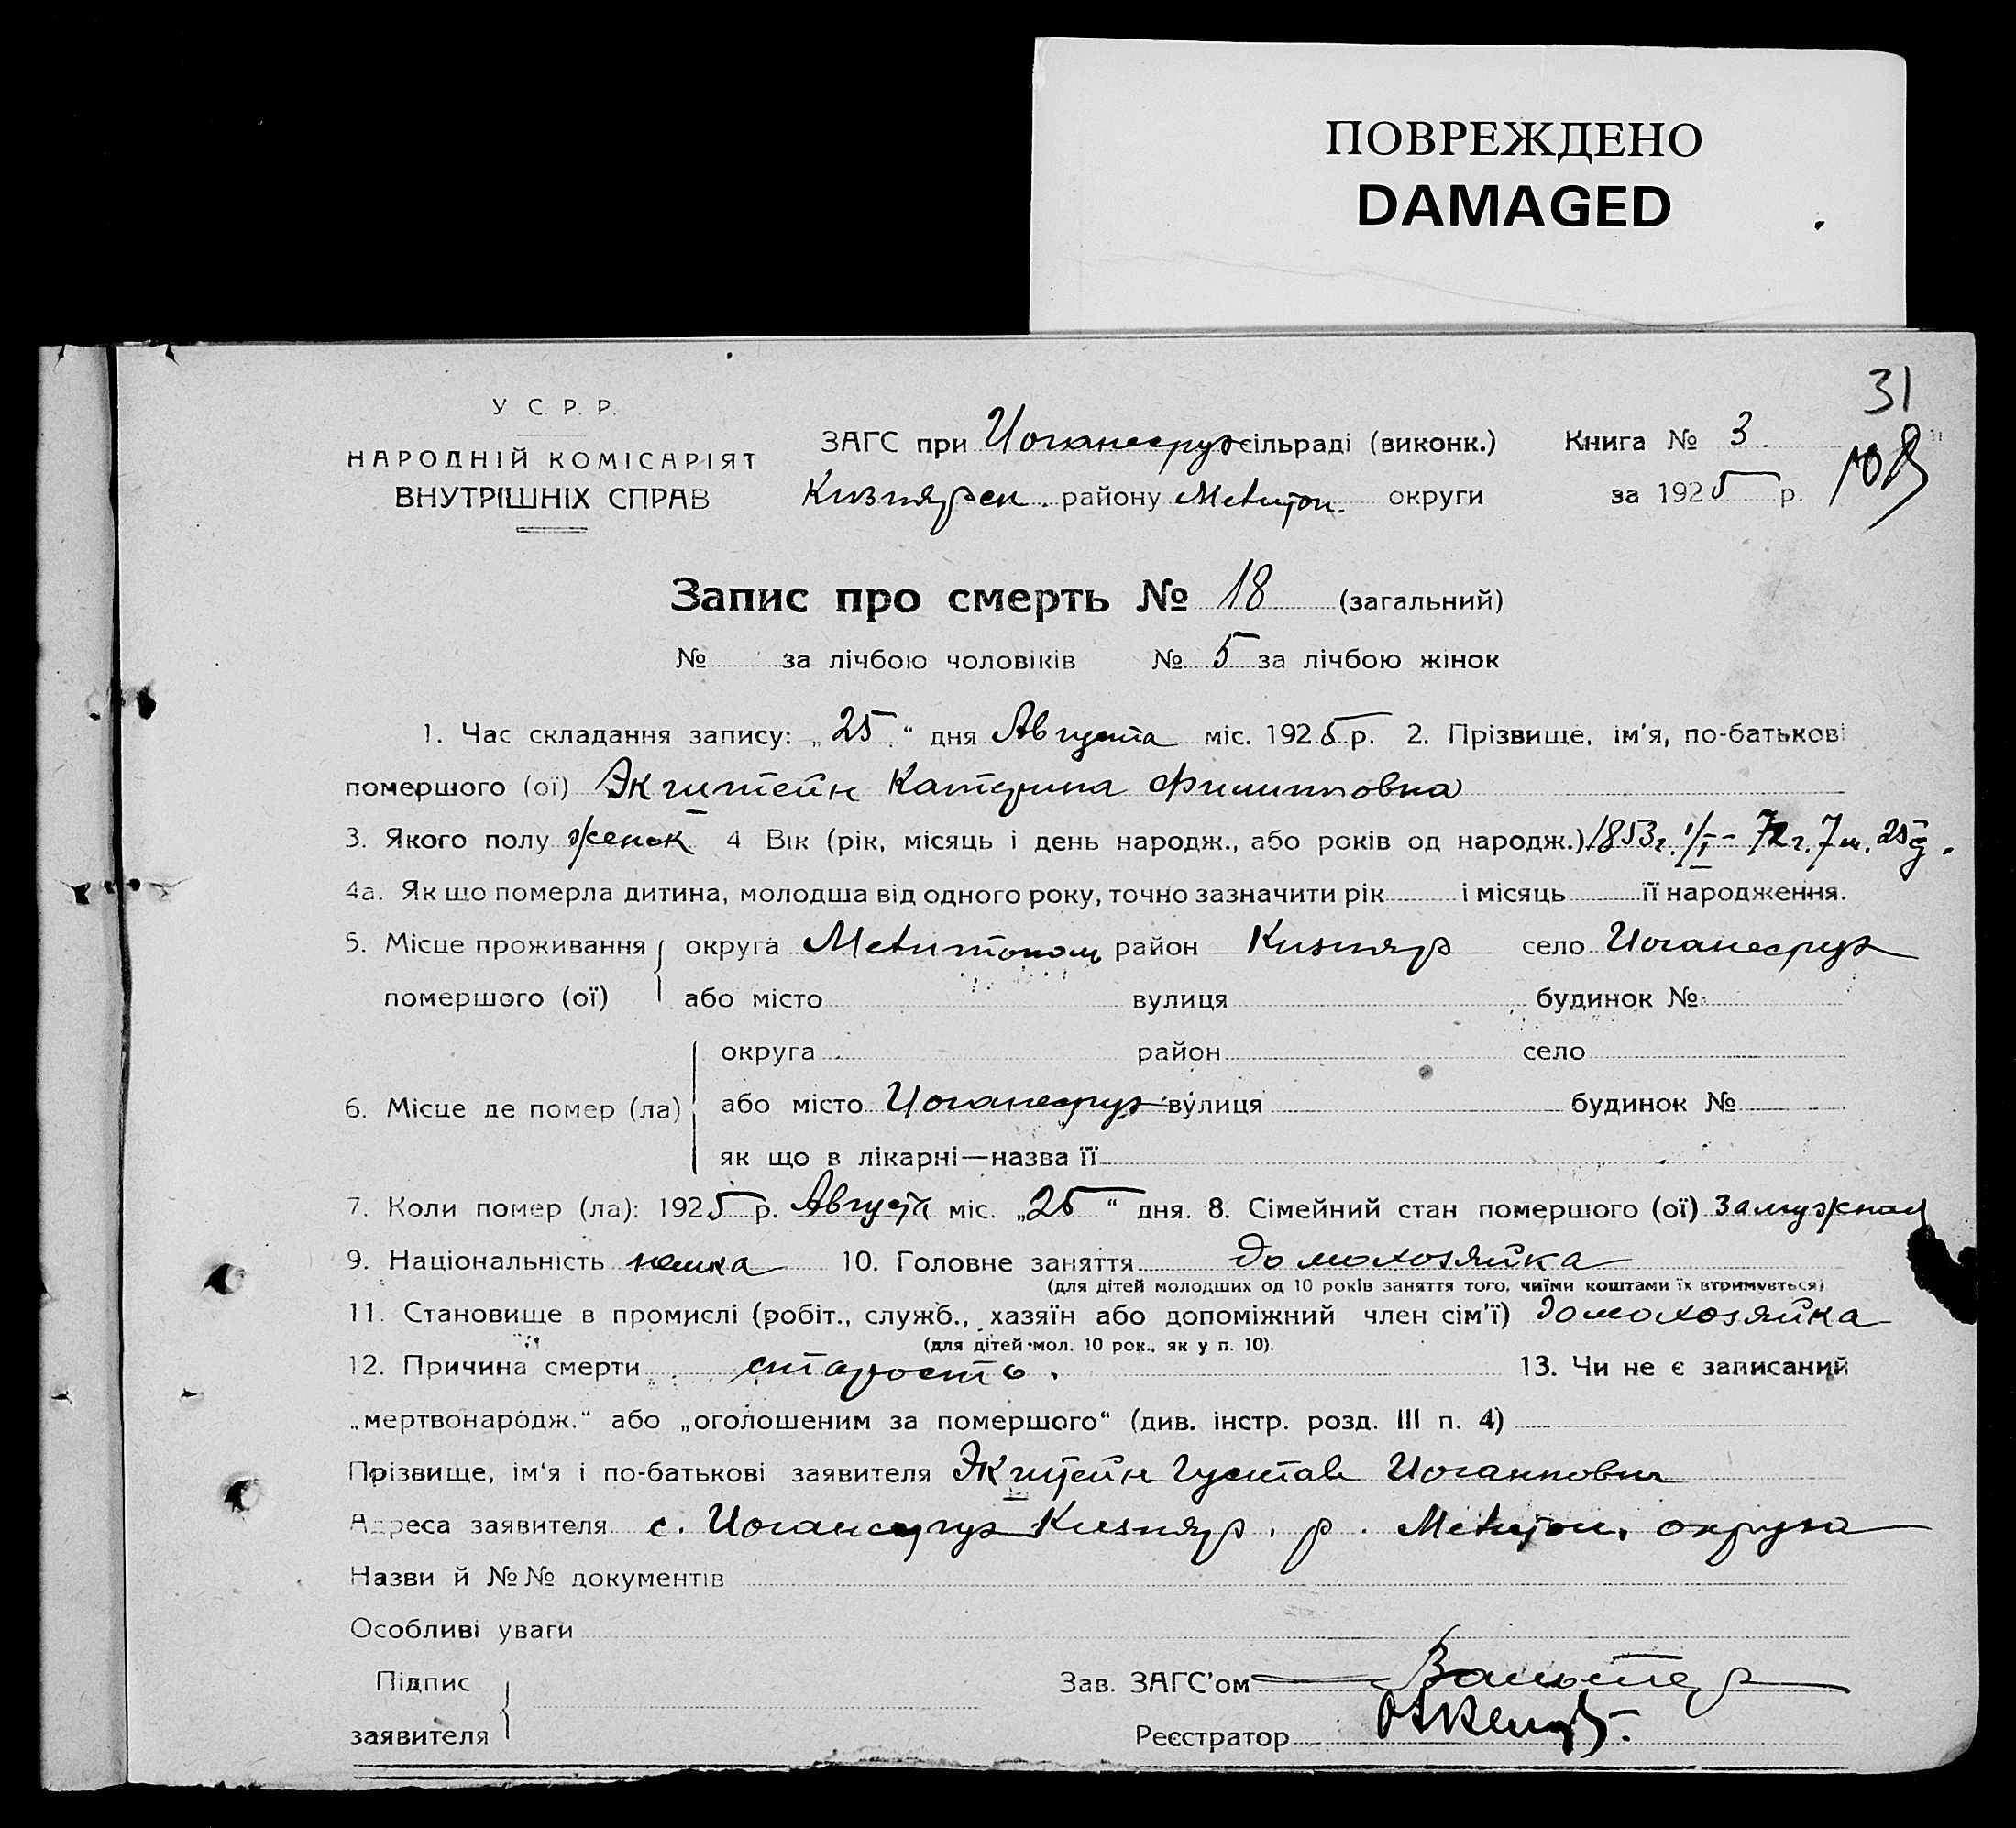 ПОВРЕЖДЕНО
DAMAGED
31
У С. Р. Р.
НАРОДНІЙ КОМІСАРІЯТ
ВНУТРІШНІХ СПРАВ
ЗАГС при Иоганесрух сільраді (виконк.) Книга № 3.
Кизиярск. району Мелитоп. округи за 1925 р.
Запис про смерть № 18 (загальний)
№ за лічбою чоловіків № 5 за лічбою жінок
1. Час складання запису: „25“ дня Августа міс. 1925 р. 2. Прізвище, ім'я, по-батькові
помершого (ої) Экштейн Катерина Филипповна
3. Якого полу женск 4 Вік (рік, місяць і день народж., або років од народж.) 1853г. 1/I – 72 г. 7 м. 25 д.
4а. Як що померла дитина, молодша від одного року, точно зазначити рік і місяць її народження.
5. Місце проживання округа Мелитополь район Кизияр село Иоганесрух
помершого (ої) або місто вулиця будинок №
округа район село
6. Місце де помер (ла) або місто Иоганесрух вулиця будинок №
як що в лікарні—назва її
7. Коли помер (ла): 1925 р. Августа міс. „25“ дня. 8. Сімейний стан помершого (ої) Замужная
9. Національність немка 10. Головне заняття домохозяйка
(для дітей молодших од 10 років заняття того, чиїми коштами їх втримується)
11. Становище в промислі (робіт., служб., хазяїн або допоміжний член сім'ї) домохозяйка
(для дітей мол. 10 рок., як у п. 10).
12. Причина смерти старость. 13. Чи не є записаний
„мертвонародж.“ або „оголошеним за помершого“ (див. інстр. розд. III п. 4)
Прізвище, ім'я і по-батькові заявителя Экштейн Густав Иоганнович
Адреса заявителя с. Иоганесрух Кизияр. р. Мелитоп. округа
Назви й №№ документів
Особливі уваги
Підпис
заявителя
Зав. ЗАГС'ом Вальтер
Реєстратор